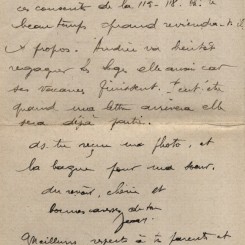 ces consents de la 119 - 18.
beaucoup quand reviendra-t-il
à propos. Andrée va bientôt
regagner elle aussi car
ses vacances finissent. Peut-être
quand ma lettre arrivera elle
sera déjà partie.
as-tu reçu ma photo, et
la bague pour ma sœur.
Au revoir, chérie et
bonnes caresses de ton
Meilleurs respects à tes parents et